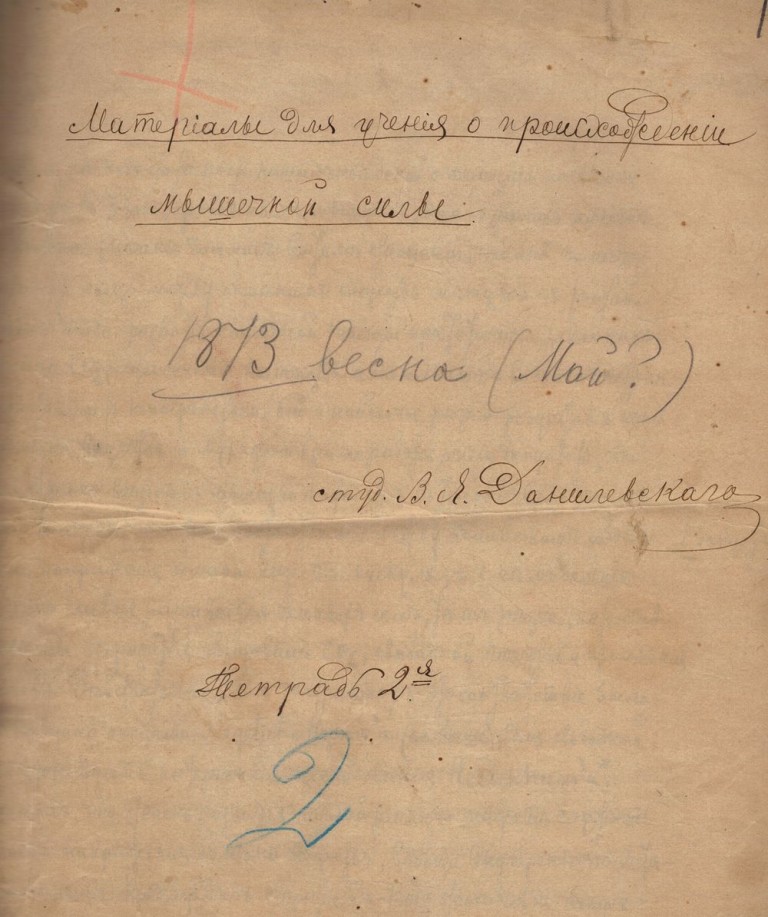 Матеріалы для ученія о происхожденіи
мышечной силы.
1873 весна (Май?)
студ. В. Я. Данилевскаго
Тетрадь 2.я
2